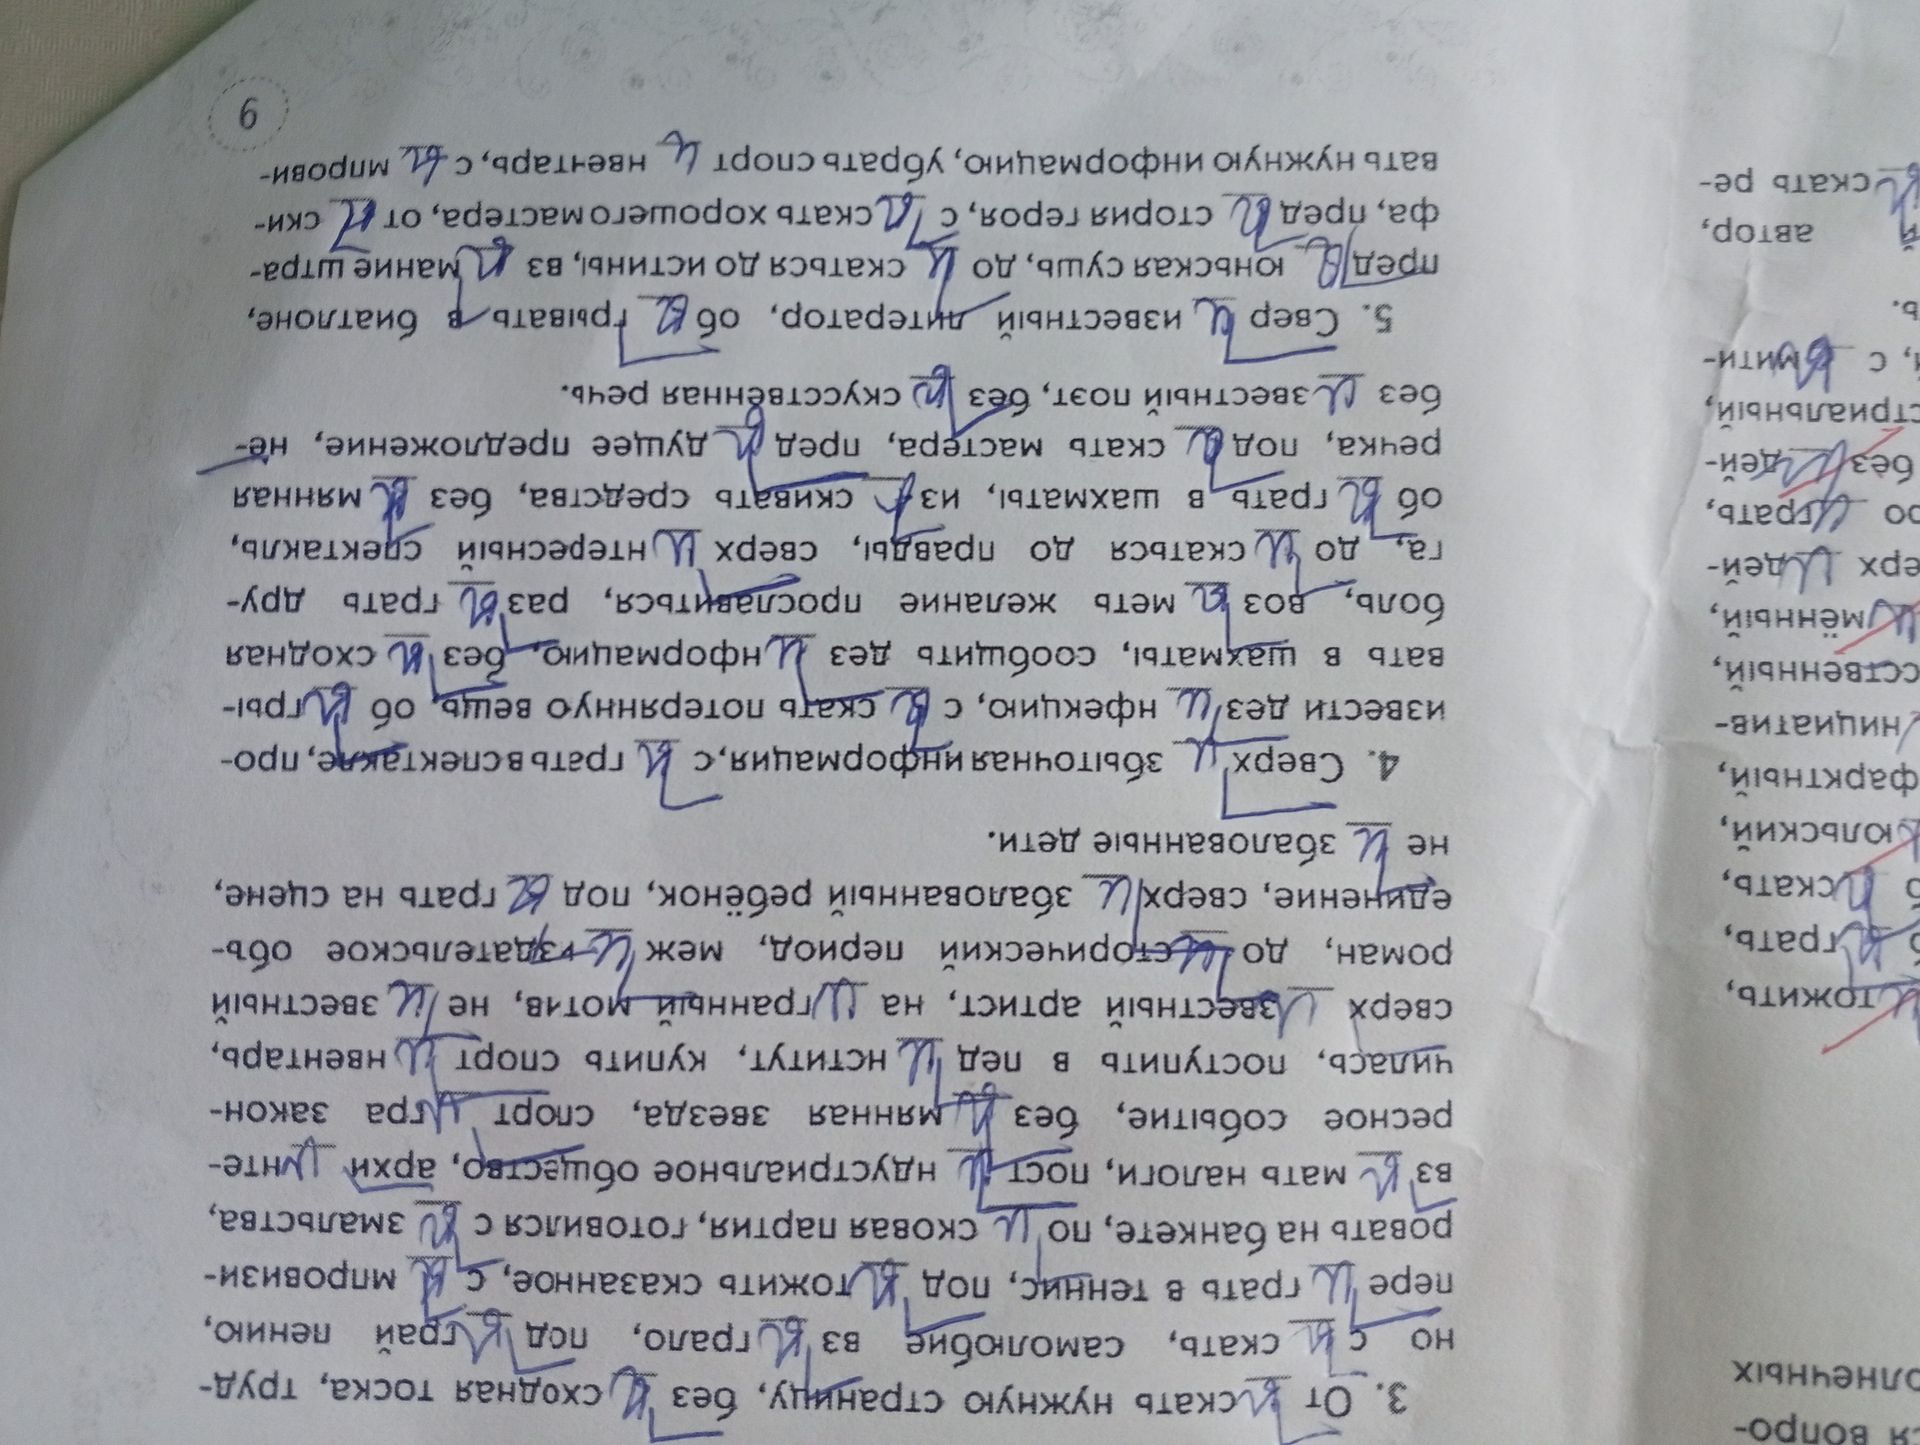 вопро-
олнечных
тожить,
ы грать,
ы скать,
юльский,
фарктный,
нициатив-
сственный,
мённый,
ерх и дей-
ро играть,
без ы дей-
стриальный,
с ы мити-
ь.
автор,
скать ре-
3. От ы скать нужную страницу, без ы сходная тоска, труд-
но с ы скать, самолюбие вз ы грало, под ы грай пению,
пере и грать в теннис, под ы тожить сказанное, с ы мпровизи-
ровать на банкете, по и сковая партия, готовился с ы змальства,
вз и мать налоги, пост и ндустриальное общество, архи и нте-
ресное событие, без ы мянная звезда, спорт и гра закон-
чилась, поступить в пед и нститут, купить спорт и нвентарь,
сверх и звестный артист, на и гранный мотив, не и звестный
роман, до и сторический период, меж и здательское объ-
единение, сверх и збалованный ребёнок, под ы грать на сцене,
не и збалованные дети.
4. Сверх и збыточная информация, с ы грать в спектакле, про-
извести дез и нфекцию, с ы скать потерянную вещь, об ы гры-
вать в шахматы, сообщить дез и нформацию, без ы сходная
боль, воз ы меть желание прославиться, раз ы грать дру-
га, до и скаться до правды, сверх и нтересный спектакль,
об ы грать в шахматы, из ы скивать средства, без ы мянная
речка, под ы скать мастера, пред ы дущее предложение, не-
без ы звестный поэт, без ы скусственная речь.
5. Свер и известный литератор, об ы грывать в биатлоне,
пред ы юньская сушь, до и скаться до истины, вз и мание штра-
фа, пред ы стория героя, с ы скать хорошего мастера, от ы ски-
вать нужную информацию, убрать спорт и нвентарь, с ы мпрови-
9